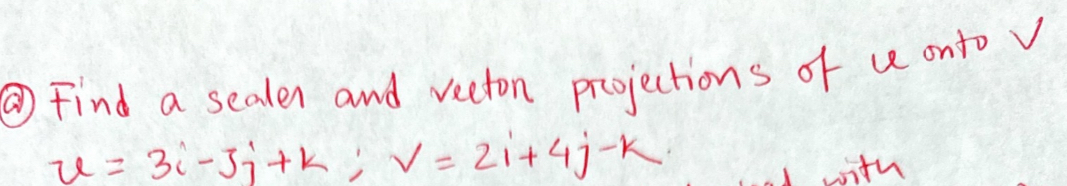 ⓐ Find a scaler and vector projections of u onto v
u = 3i - 3j + k ; v = 2i + 4j - k.
with